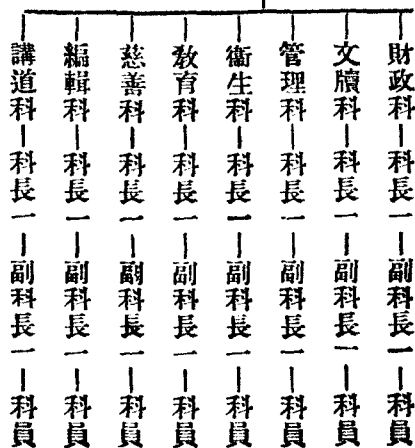 財政科－科長一－副科長一－科員
文牘科－科長一－副科長一－科員
管理科－科長一－副科長一－科員
衞生科－科長一－副科長一－科員
教育科－科長一－副科長一－科員
慈善科－科長一－副科長一－科員
編輯科－科長一－副科長一－科員
講道科－科長一－副科長一－科員